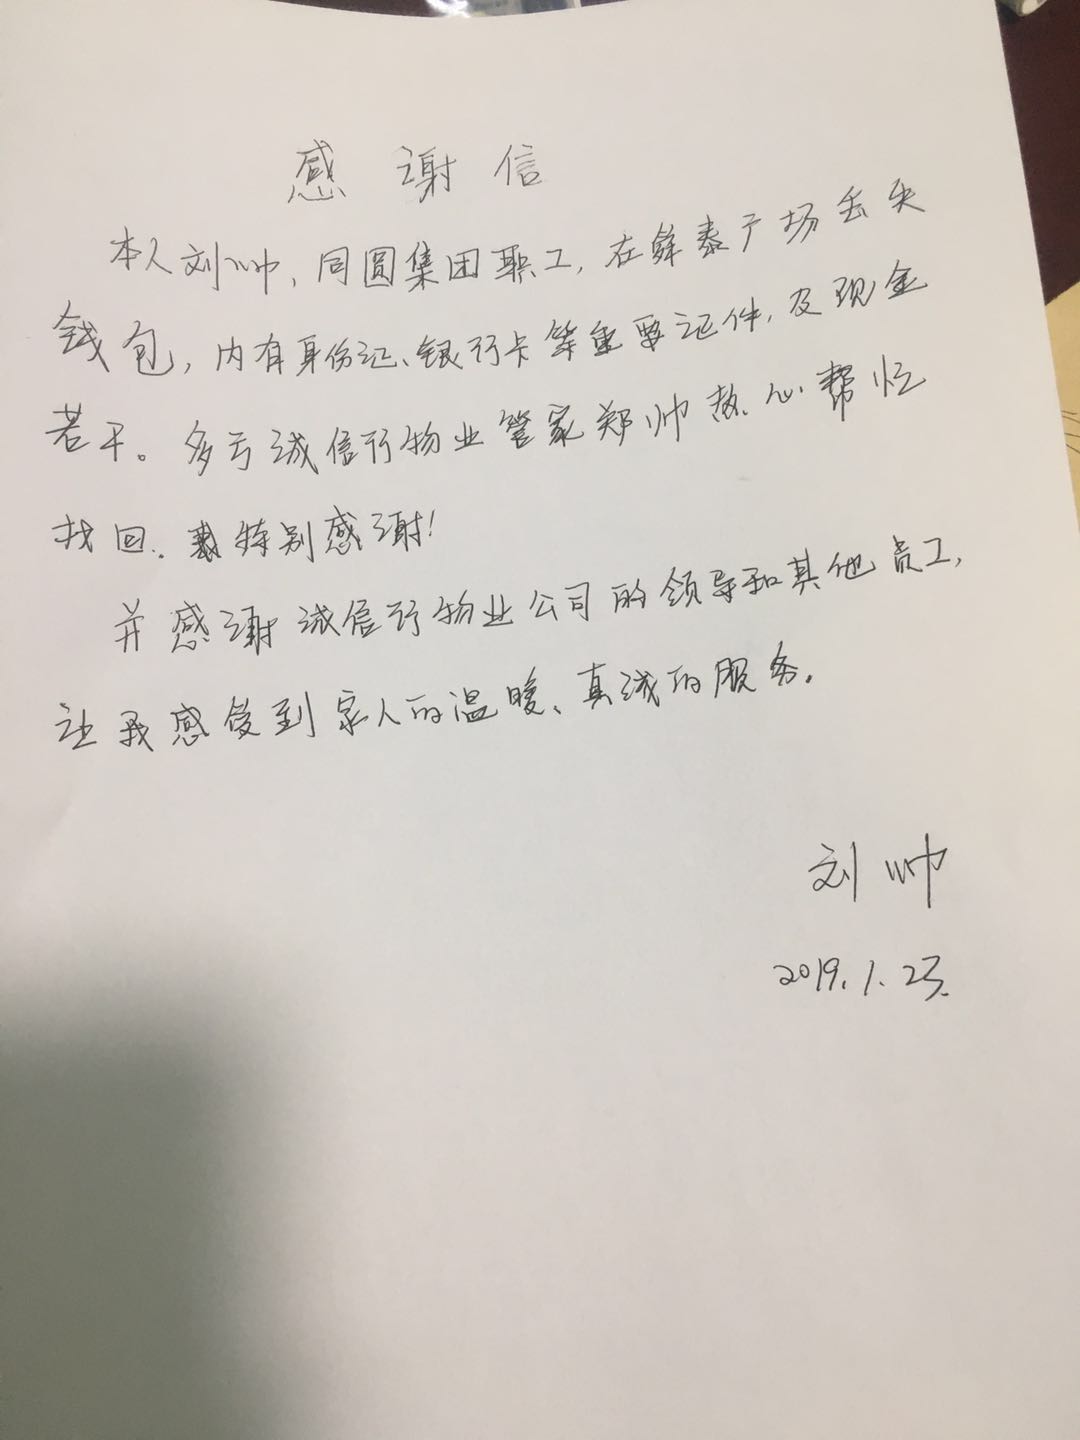 感谢信
本人刘帅，同圆集团职工，在舜泰广场丢失
钱包，内有身份证、银行卡等重要证件，及现金
若干。多亏诚信行物业管家郑帅热心帮忙
找回。特别感谢！
并感谢诚信行物业公司的领导和其他员工，
让我感受到家人的温暖、真诚的服务。
刘帅
2019.1.23.